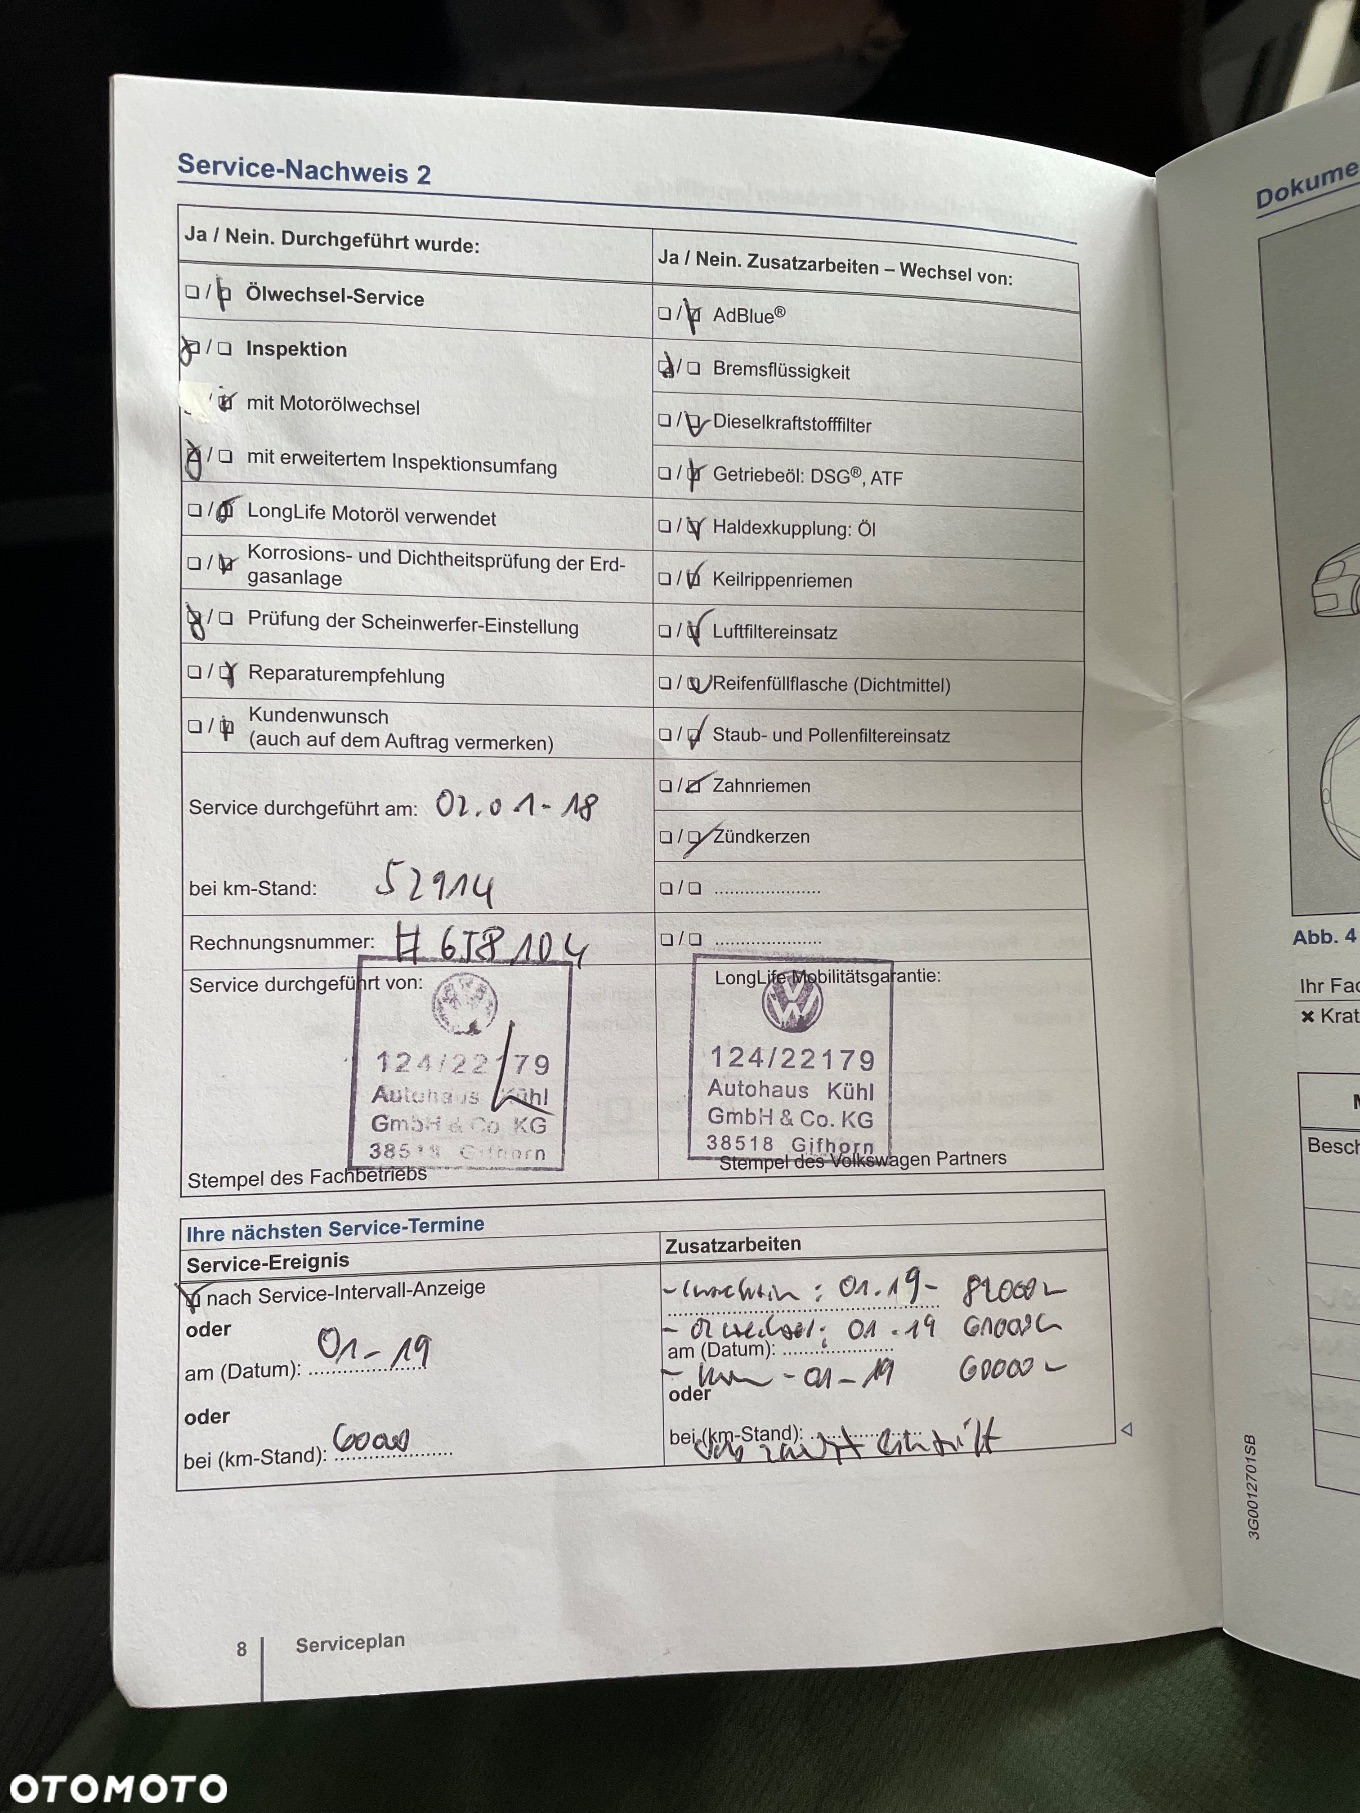 Service-Nachweis 2
Dokume
Ja / Nein. Durchgeführt wurde:
Ja / Nein. Zusatzarbeiten – Wechsel von:
Ölwechsel-Service
AdBlue®
Inspektion
Bremsflüssigkeit
mit Motorölwechsel
Dieselkraftstofffilter
mit erweitertem Inspektionsumfang
Getriebeöl: DSG®, ATF
LongLife Motoröl verwendet
Haldexkupplung: Öl
Korrosions- und Dichtheitsprüfung der Erd-
gasanlage
Keilrippenriemen
Prüfung der Scheinwerfer-Einstellung
Luftfiltereinsatz
Reparaturempfehlung
Reifenfüllflasche (Dichtmittel)
Kundenwunsch
(auch auf dem Auftrag vermerken)
Staub- und Pollenfiltereinsatz
Zahnriemen
Service durchgeführt am: 02.01-18
Zündkerzen
bei km-Stand: 52914
Rechnungsnummer:
Service durchgeführt von:
124/22179
Autohaus Kühl
GmbH & Co. KG
38518 Gifhorn
Stempel des Fachbetriebs
LongLife Mobilitätsgarantie:
124/22179
Autohaus Kühl
GmbH & Co. KG
38518 Gifhorn
Stempel des Volkswagen Partners
Abb. 4
Ihr Fac
✖ Krat
Besch
Ihre nächsten Service-Termine
Service-Ereignis
Zusatzarbeiten
nach Service-Intervall-Anzeige
oder
am (Datum): 01-19
oder
bei (km-Stand): 60000
01.19-
01.19
am (Datum):
01-19 60000
oder
bei (km-Stand):
eintritt
3G0012701SB
8 Serviceplan
OTOMOTO